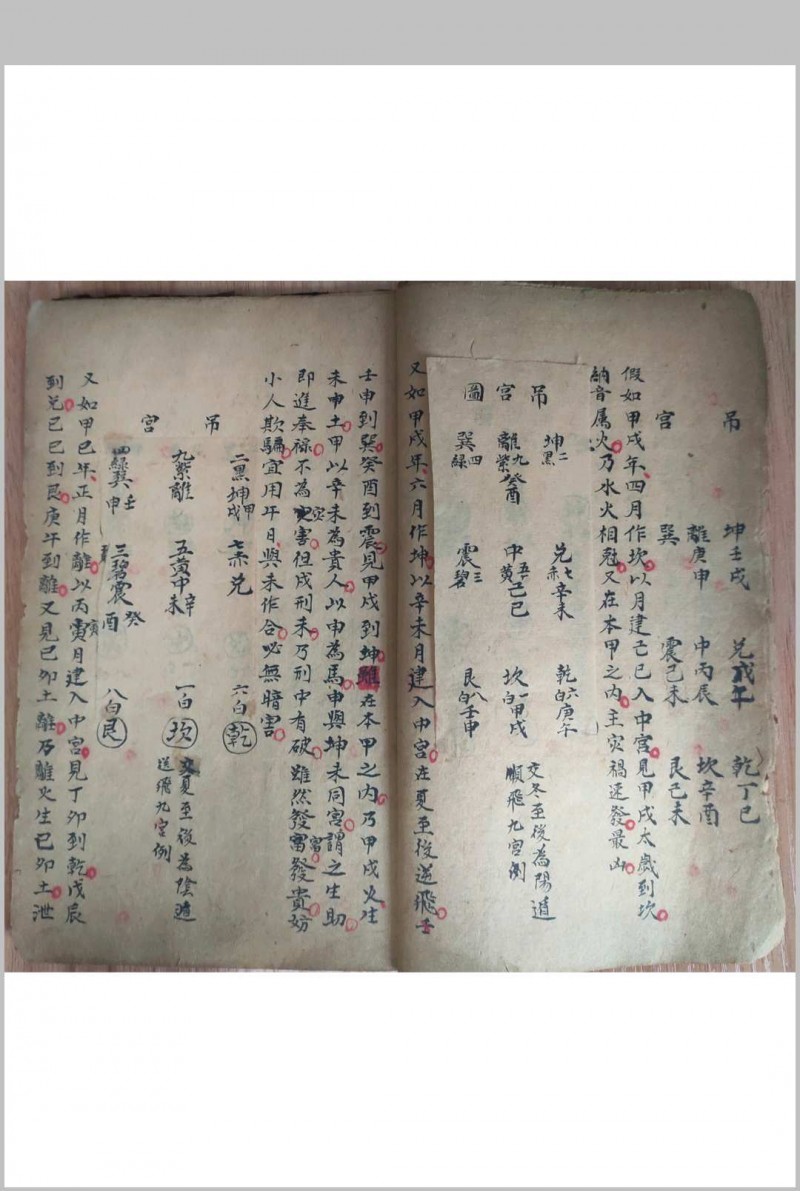 吊 坤壬戌 兌戊午 乾丁巳
離庚申 中丙辰 坎辛酉
宮 巽 震己未 艮己未
假如甲戌年四月作坎以月建己巳入中宮見甲戌太歲到坎
納音属火乃水火相尅又在本甲之内主灾禍速發最凶
吊 坤二黑 兌七赤辛未 乾六白庚午
宮 離九紫癸酉 中五黃己巳 坎一白甲戌
圖 巽四緑 震三碧 艮八白壬申
交冬至後為陽道
順飛九宮例
又如甲戌年六月作坤以辛未月建入中宮在夏至後逆飛壬
壬申到巽癸酉到震見甲戌到坤離在本甲之内乃甲戌火生
未申土甲以辛未為貴人以申為馬申與坤未同宮謂之生助
即進奉禄不為灾害但戌刑未乃刑中有破雖然發富發貴妨
小人欺騙宜用午日與未作合必無暗害
吊 二黑坤甲戌 七赤兌 六白乾
宮 九紫離 五黃中辛未 一白坎
四緑巽壬申 三碧震癸酉 八白艮
交夏至後為陰道
逆飛九宮例
又如甲巳年正月作離以丙寅月建入中宮見丁卯到乾戊辰
到兌己巳到艮庚午到離又見己卯土離乃離火生己卯土泄